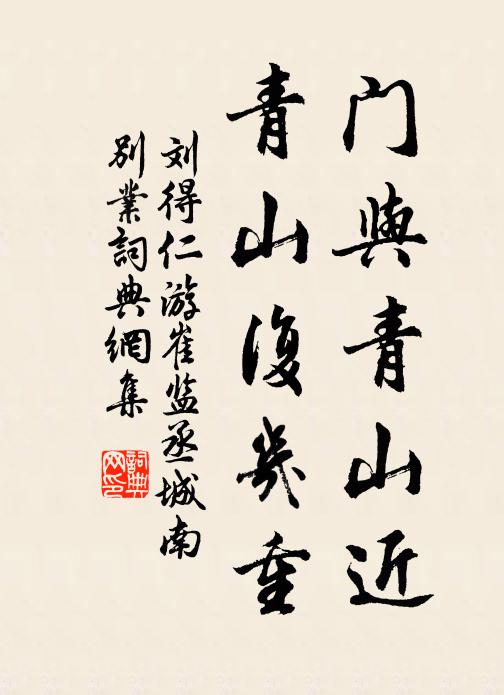 門與青山近
青山復幾重
刘得仁游崔监丞城南
别業詞典網集
詞典
网印